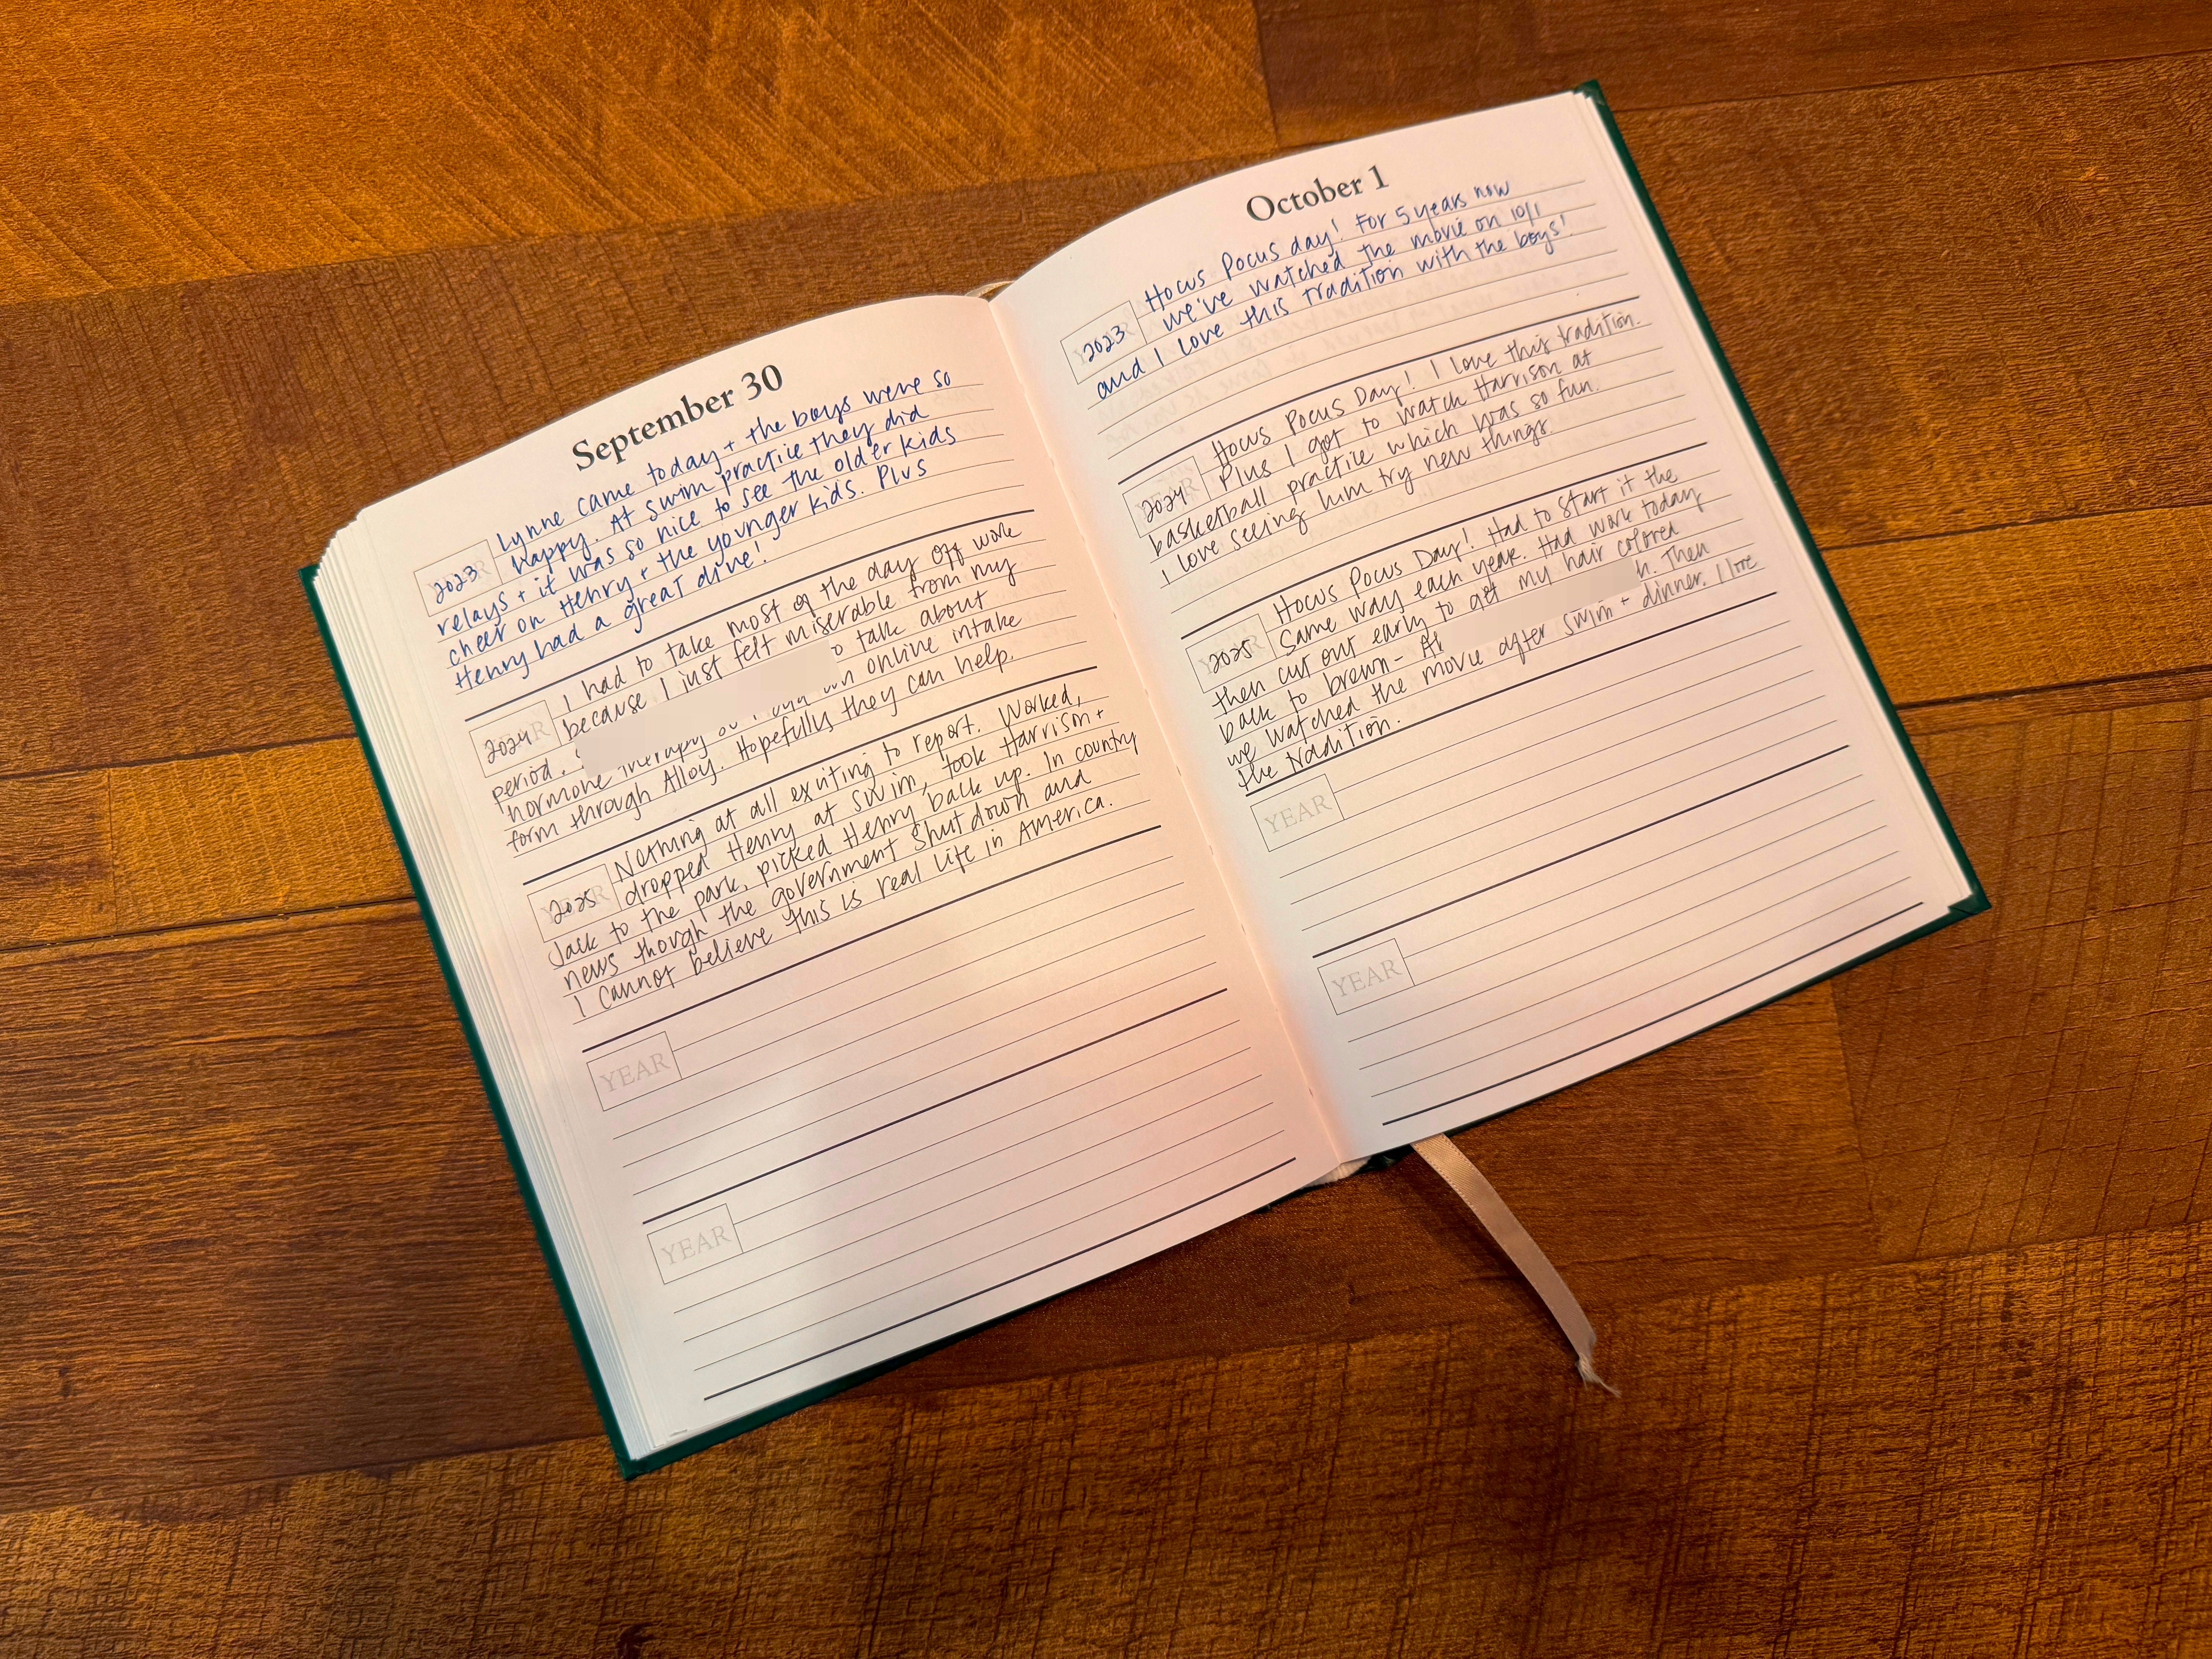 September 30
2023 Lynne came today + the boys were so
happy. At swim practice they did
relays + it was so nice to see the older kids
cheer on Henry + the younger kids. Plus
Henry had a great dive!
2024 I had to take most of the day off work
because I just felt miserable from my
period. talk about
hormone therapy online intake
form through Alloy. Hopefully they can help.
2025 Nothing at all exciting to report. Worked,
dropped Henry at swim, took Harrison +
Jack to the park, picked Henry back up. In country
news though the government shut down and
I cannot believe this is real life in America.
YEAR
YEAR
October 1
2023 Hocus Pocus day! For 5 years now
we've watched the movie on 10/1
and I love this tradition with the boys!
2024 Hocus Pocus Day! I love this tradition.
Plus I got to watch Harrison at
basketball practice which was so fun.
I love seeing him try new things.
2025 Hocus Pocus Day! Had to start it the
same way each year. Had work today
then cut out early to get my hair colored
back to brown- Then
we watched the movie after swim + dinner. I love
the tradition.
YEAR
YEAR